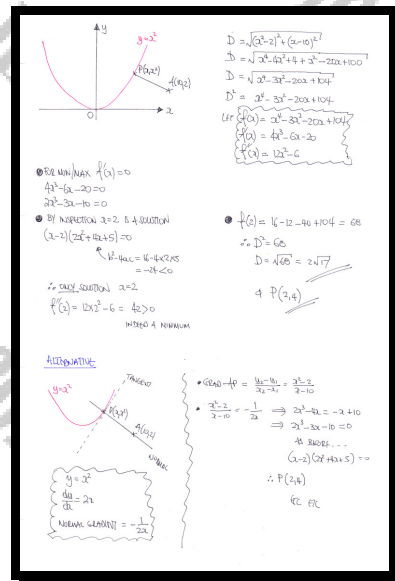 y
y=x²
P(x,x²)
A(10,2)
x
O
D = √((x²-2)²+(x-10)²)
D = √(x⁴-4x²+4+x²-20x+100)
D = √(x⁴-3x²-20x+104)
D² = x⁴-3x²-20x+104
LET f(x) = x⁴-3x²-20x+104
f'(x) = 4x³-6x-20
f''(x) = 12x²-6
FOR MIN/MAX f'(x)=0
4x³-6x-20=0
2x³-3x-10=0
BY INSPECTION x=2 IS A SOLUTION
(x-2)(2x²+4x+5)=0
b²-4ac = 16-4×2×5
= -24<0
∴ ONLY SOLUTION x=2
f''(2) = 12×2²-6 = 42>0
INDEED A MINIMUM
f(2) = 16-12-40+104 = 68
∴ D²=68
D=√68 = 2√17
& P(2,4)
ALTERNATIVE
TANGENT
y=x²
P(x,x²)
A(10,2)
NORMAL
y=x²
dy/dx = 2x
NORMAL GRADIENT = -1/2x
GRAD AP = y₂-y₁/x₂-x₁ = x²-2/x-10
x²-2/x-10 = -1/2x ⇒ 2x³-4x = -x+10
⇒ 2x³-3x-10=0
AS BEFORE...
(x-2)(2x²+4x+5)=0
∴ P(2,4)
ETC ETC